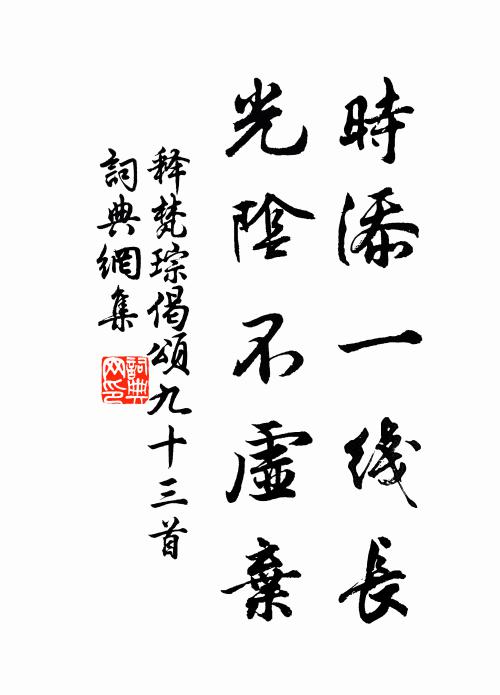 時添一线長
光陰不虛棄
释梵琮偈頌九十三首
詞典網集
詞典網印